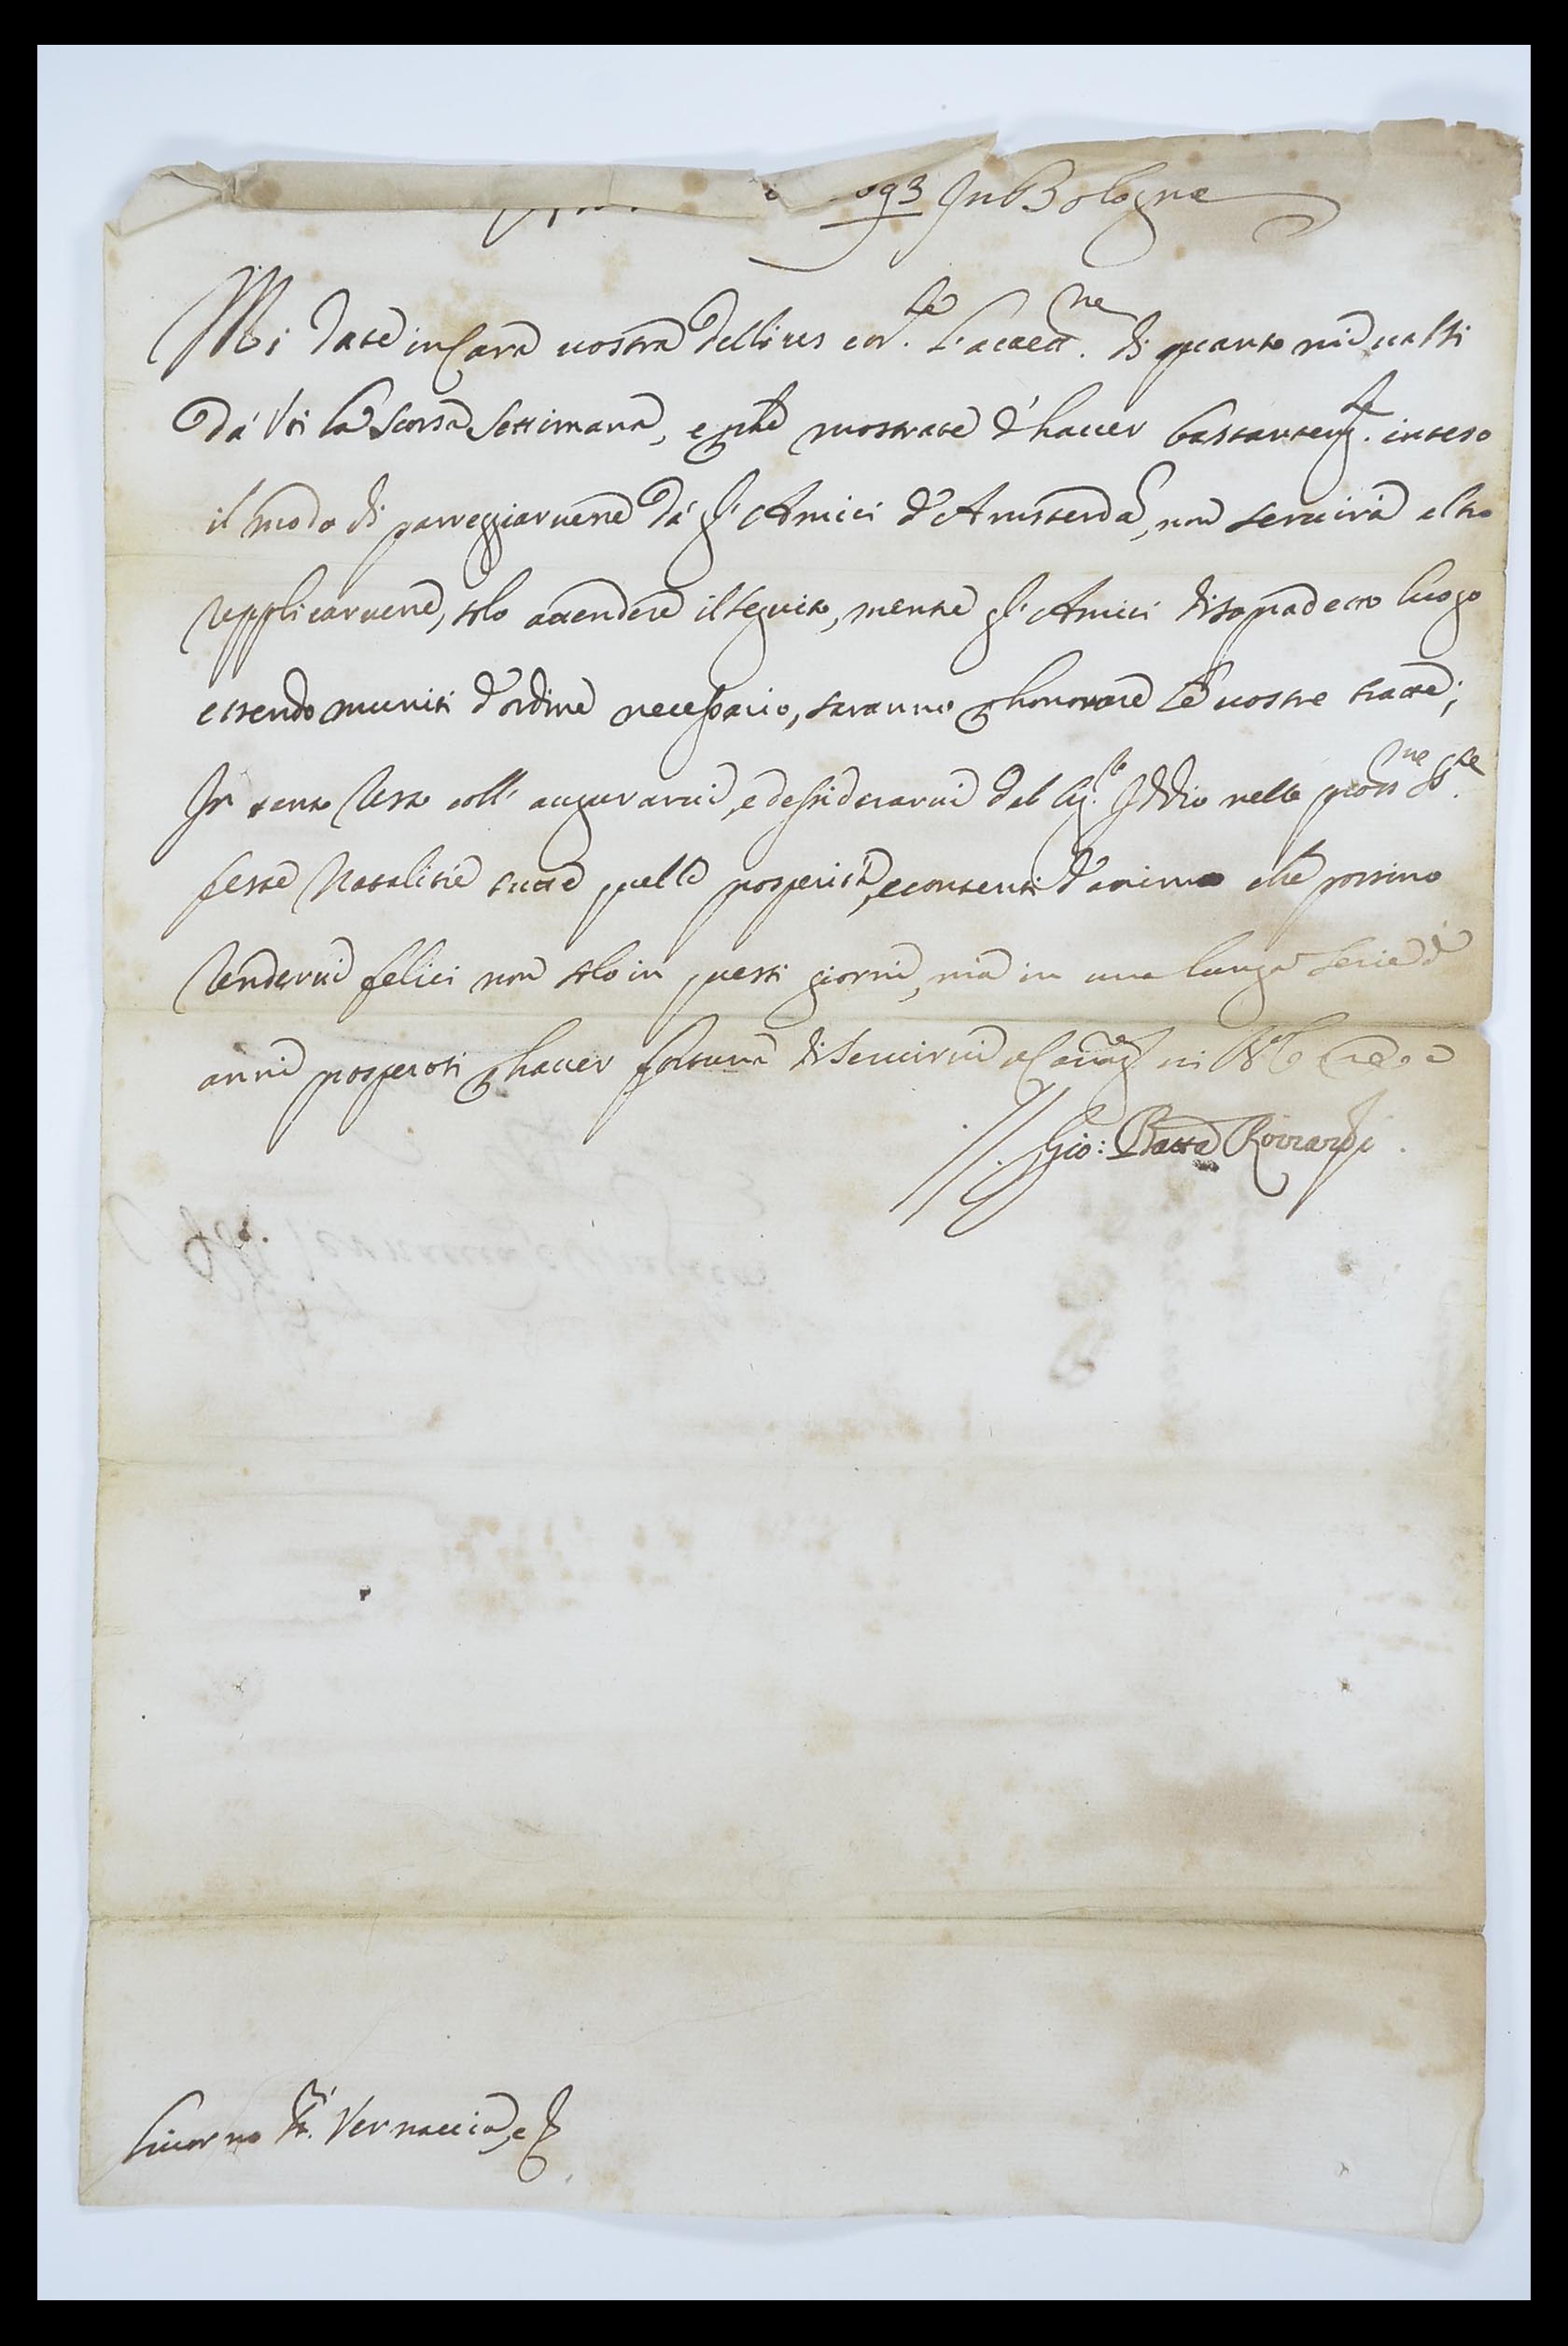 693 In Bologna
Mi date in Cara vostra delli 15 cor.te l'accett.ne di quanto mi valsi
da Voi la scorsa settimana, e perche mostrate d'haver bastantem.te inteso
il modo di pareggiarvene da gl'Amici d'Amsterdã, non servirà altro
repplicarvene, solo attendere il seguito, mentre gl'Amici di sopradetto luogo
essendo muniti d'ordine necessario, saranno p honorare le vostre tratte;
In tanto resto coll' augurarvi, e dessiderarvi dal Sig.re Iddio nelle pross.me S.te
feste Natalitie tutte quelle prosperità, e contenti d'animo che possino
rendervi felici non solo in questi giorni, mà in una lunga serie d
anni prosperosi p haver fortuna di servirvi
Gio: Batta
Livorno ss.ri Vernaccia, e